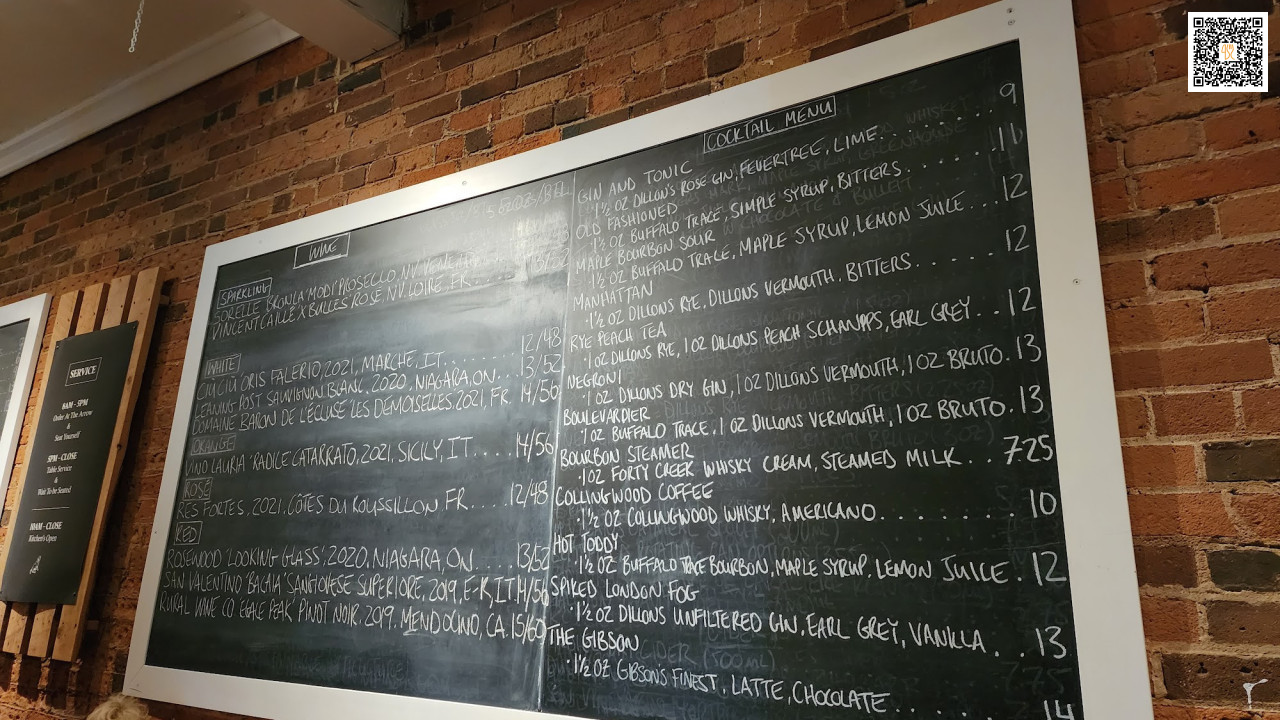 SERVICE
8AM - 5PM
Order At The Arrow
&
Seat Yourself
5PM - CLOSE
Table Service
&
Wait To be Seated
10AM - CLOSE
Kitchen's Open
WINE
SPARKLING
SORELLE BRONCA 'MODI' PROSECCO, N.V.
VINCENT CAILLÉ X BULLES ROSÉ, N.V. LOIRE, FR
WHITE
CIÙ CIÙ ORIS FALERIO, 2021, MARCHE, IT. 12/48
LEANING POST SAUVIGNON BLANC, 2020, NIAGARA, ON. 13/52
DOMAINE BARON DE L'ÉCLUSE LES DEMOISELLES 2021, FR. 14/56
ORANGE
VINO LAURIA 'RADICE' CATARRATO, 2021, SICILY, IT. 14/56
ROSÉ
RES FORTES, 2021, CÔTES DU ROUSSILLON FR. 12/48
RED
ROSEWOOD 'LOOKING GLASS', 2020, NIAGARA, ON. 13/52
SAN VALENTINO SANGIOVESE SUPERIORE, 2019, E-R, IT. 14/56
RURAL WINE CO PEAK PINOT NOIR. 2019, MENDOCINO, CA. 15/60
COCKTAIL MENU
GIN AND TONIC
· 1½ OZ DILLON'S ROSE GIN, FEVERTREE, LIME. 9
OLD FASHIONED
· 1½ OZ BUFFALO TRACE, SIMPLE SYRUP, BITTERS. 11
MAPLE BOURBON SOUR
· 1½ OZ BUFFALO TRACE, MAPLE SYRUP, LEMON JUICE 12
MANHATTAN
· 1½ OZ DILLONS RYE, DILLONS VERMOUTH, BITTERS 12
RYE PEACH TEA
· 1 OZ DILLONS RYE, 1 OZ DILLONS PEACH SCHNAPPS, EARL GREY 12
NEGRONI
· 1 OZ DILLONS DRY GIN, 1 OZ DILLON'S VERMOUTH, 1 OZ BRUTO. 13
BOULEVARDIER
· 1 OZ BUFFALO TRACE, 1 OZ DILLONS VERMOUTH, 1 OZ BRUTO. 13
BOURBON STEAMER
· 1 OZ FORTY CREEK WHISKY CREAM, STEAMED MILK 7.25
COLLINGWOOD COFFEE
· 1½ OZ COLLINGWOOD WHISKY, AMERICANO. 10
HOT TODDY
· 1½ OZ BUFFALO TRACE BOURBON, MAPLE SYRUP, LEMON JUICE. 12
SPIKED LONDON FOG
· 1½ OZ DILLONS UNFILTERED GIN, EARL GREY, VANILLA 13
THE GIBSON
· 1½ OZ GIBSON'S FINEST, LATTE, CHOCOLATE 14